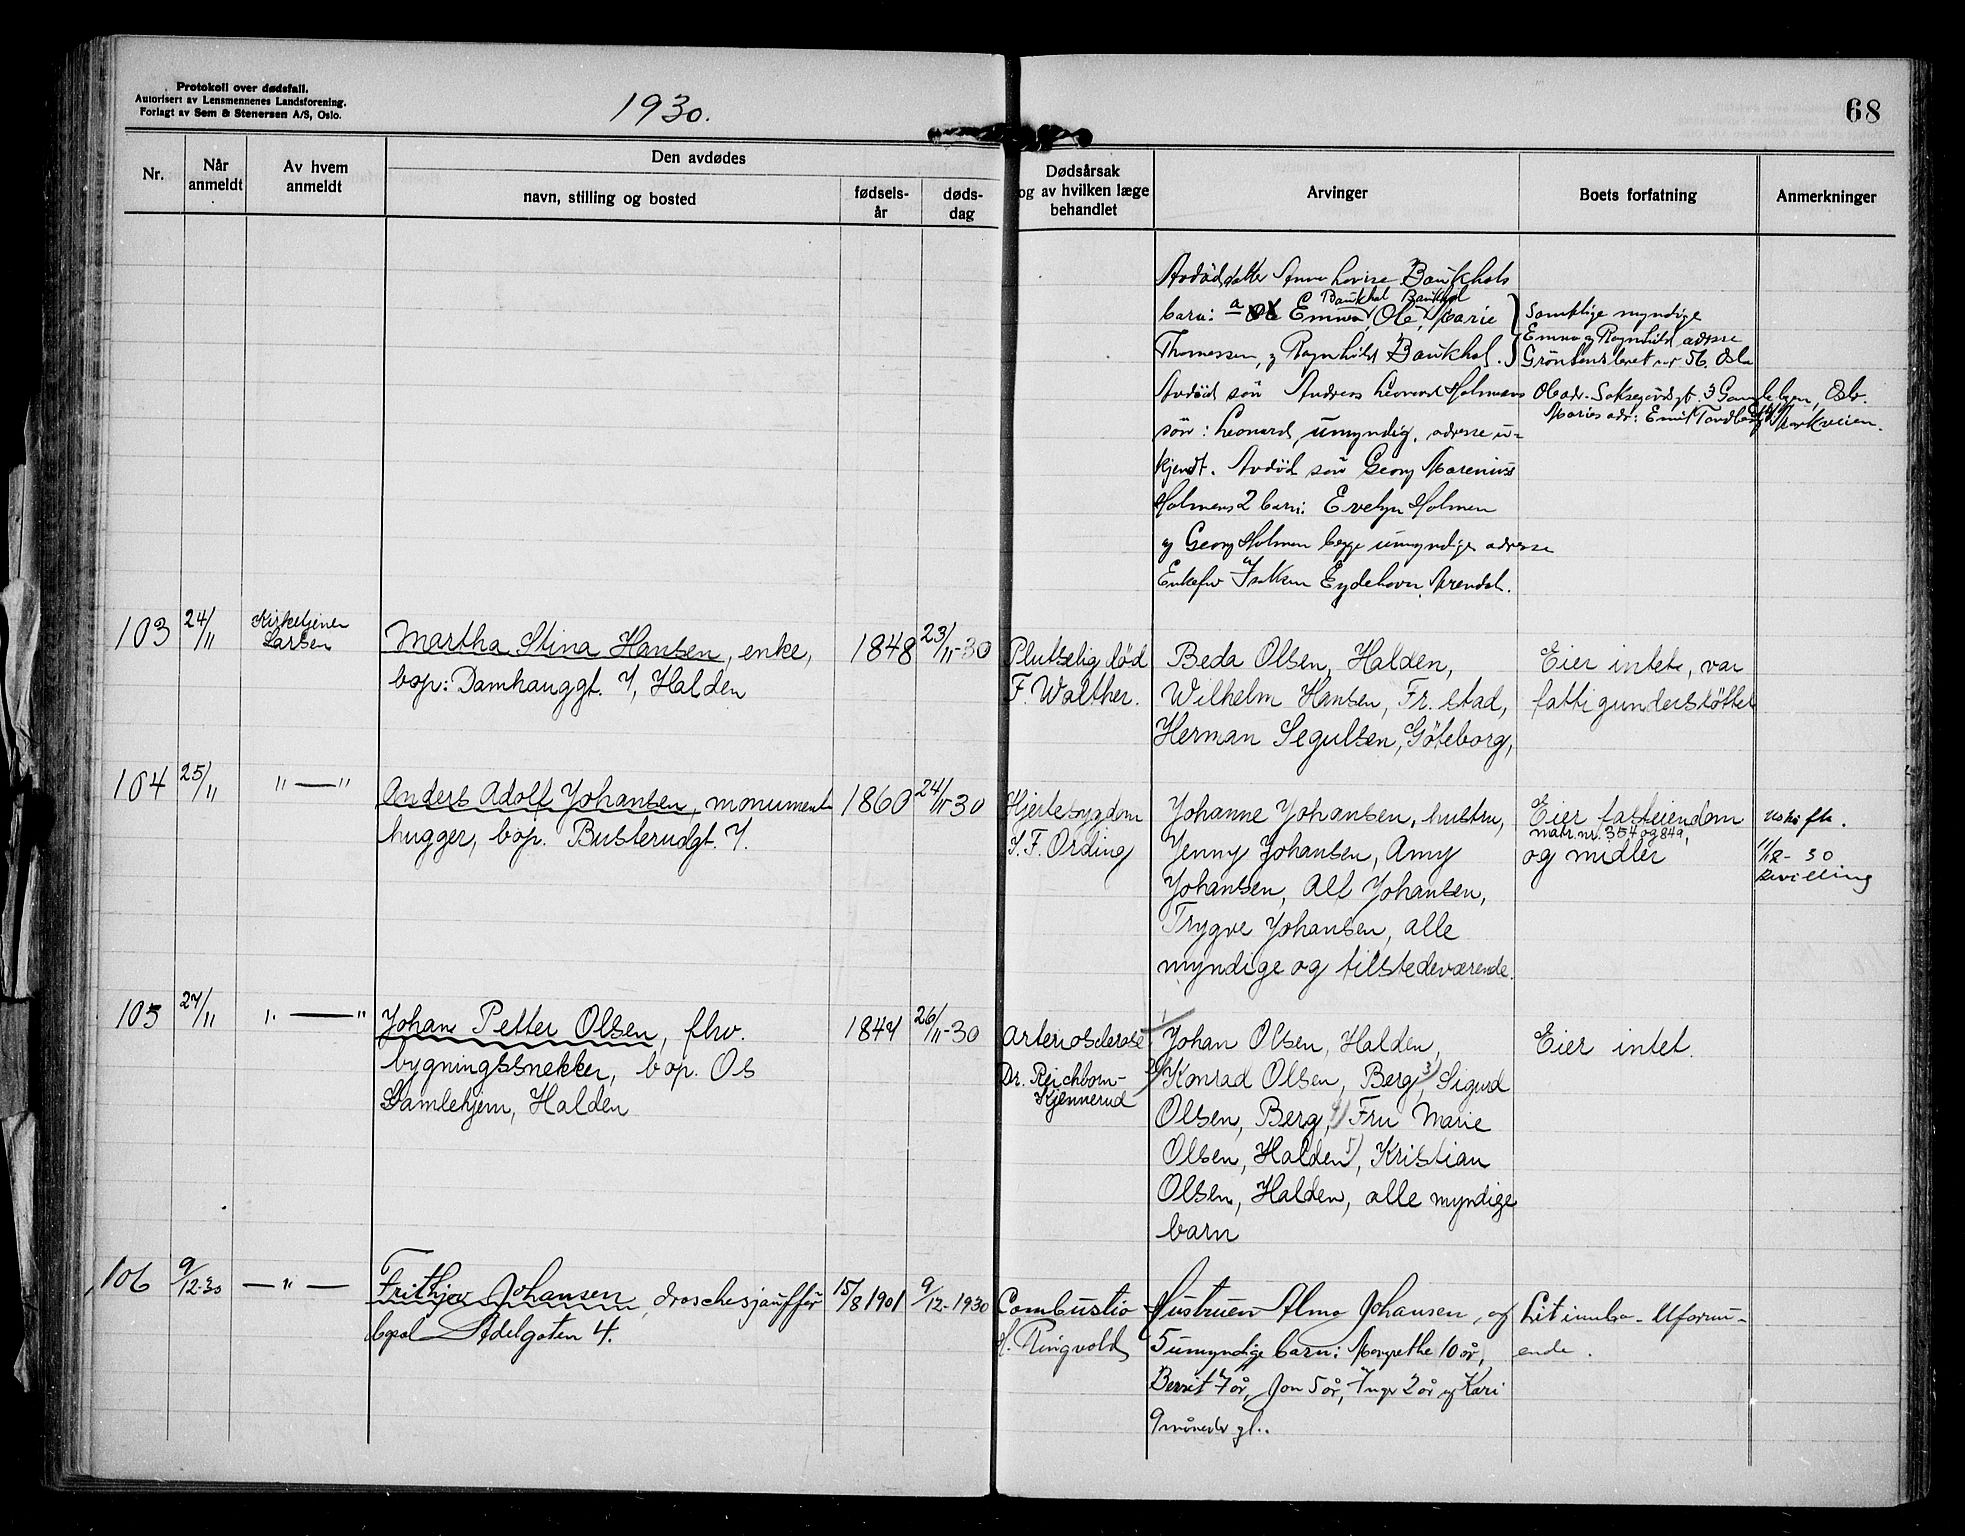 Protokoll over dødsfall.
Autorisert av Lensmennenes Landsforening.
Forlagt av Sem & Stenersen A/S, Oslo.
1930.
68
Nr.
Når anmeldt
Av hvem anmeldt
Den avdødes
navn, stilling og bosted
fødsels-år
døds-dag
Dødsårsak og av hvilken læge behandlet
Arvinger
Boets forfatning
Anmerkninger
Avdød datter Anna Lovise Baukhols
Baukhol Baukhol
barn: a Emma, Ole, Marie
Thomessen, og Ragnhild Baukhol.
Samtlige myndige
Emma og Ragnhild adresse
Grønlandsleret nr 56. Oslo
Avdød søn Andreas Leonard Holmens
søn: Leonard, umyndig, adresse u-
kjendt. Avdød søn Georg Marenius
Holmens 2 barn: Evelyn Holmen
og Georg Holmen begge umyndige adresse
Enkefru Eydehavn, Arendal.
Ole adr. 3 Gamlebyen, Oslo.
Maries adr: Emil Markveien.
103
24/11
Kirketjener
Larsen
Martha Stina Hansen, enke,
bop: Damhauggt. 7, Halden
1848
23/11-30
Plutselig død
F. Walther.
Beda Olsen, Halden,
Wilhelm Hansen, Fr.stad,
Herman Segulsen, Göteborg,
Eier intet, var
fattigunderstøttet
104
25/11
" — "
Anders Adolf Johansen, monument
hugger, bop. Busterudgt. 7.
1860
24/11-30
Hjertesygdom
S. F. Ording
Johanne Johansen, hustru,
Jenny Johansen, Amy
Johansen, Alf Johansen,
Trygve Johansen, alle
myndige og tilstedeværende.
Eier fasteiendom
matr.nr. 354 og 849,
og midler
uskifte.
11/12-30
Bevilling
105
27/11
" — "
Johan Petter Olsen, fhv.
bygningssnekker, bop. Os
Gamlehjem, Halden
1847
26/11-30
Arteriosclerose
Dr. Reichborn-
Kjennerud
1/ Johan Olsen, Halden,
2/ Konrad Olsen, Berg, 3) Sigurd
Olsen, Berg, 4) Fru Marie
Olsen, Halden 5), Kristian
Olsen, Halden, alle myndige
barn
Eier intet.
106
9/12-30
— " —
Frithjov Johansen, droschesjaufför
bopæl Adelgaten 4.
15/8 1901
9/12-1930
Combustio
H. Ringvold
Hustruen Alma Johansen, og
5 umyndige barn: Margrethe 10 år,
Berit 7 år, Jon 5 år, Inger 2 år og Kari
9 måneder gl..
Lit innbo. Uformu-
ende.